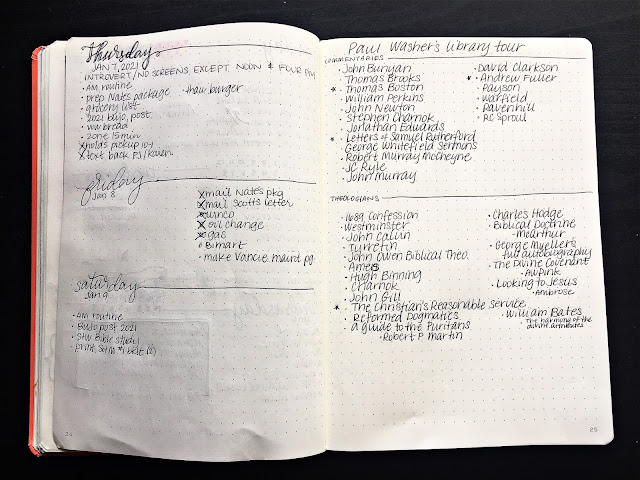 Thursday
JAN 7, 2021
INTROVERT / NO SCREENS EXCEPT NOON & FOUR PM
• AM routine
• prep Nates package
• thaw burger
• grocery list
• 2021 bujo post
• ww bread
• zone 15 min
x holds pickup 10-1
x text back PJ / Karen
friday
Jan 8
x mail Nate's pkg
x mail Scott's letter
x winco
x oil change
x gas
• Bimart
• make Vancie maint pg.
saturday
Jan 9
• AM routine
• BuJo post 2021
• STW Bible study
• print
24
Paul Washer's library tour
COMMENTARIES
• John Bunyan
• Thomas Brooks
* • Thomas Boston
• William Perkins
• John Newton
• Stephen Charnok
• Jonathan Edwards
* • Letters of Samuel Rutherford
• George Whitefield Sermons
• Robert Murray McCheyne
• JC Ryle
• John Murray
• David Clarkson
* • Andrew Fuller
• Payson
• Warfield
• Ravenhill
• RC Sproul
THEOLOGIANS
• 1689 Confession
• Westminster
• John Calvin
• Turretin
• John Owen Biblical Theo.
• Ames
• Hugh Binning
• Charnok
• John Gill
* • The Christian's Reasonable Service
• Reformed Dogmatics
• a guide to the Puritans
• Robert P Martin
• Charles Hodge
• Biblical Doctrine
- McArthur
• George Mueller's
full autobiography
• The Divine Covenant
AW Pink
• Looking to Jesus
• Ambrose
• William Bates
The harmony of the
divine attributes
25